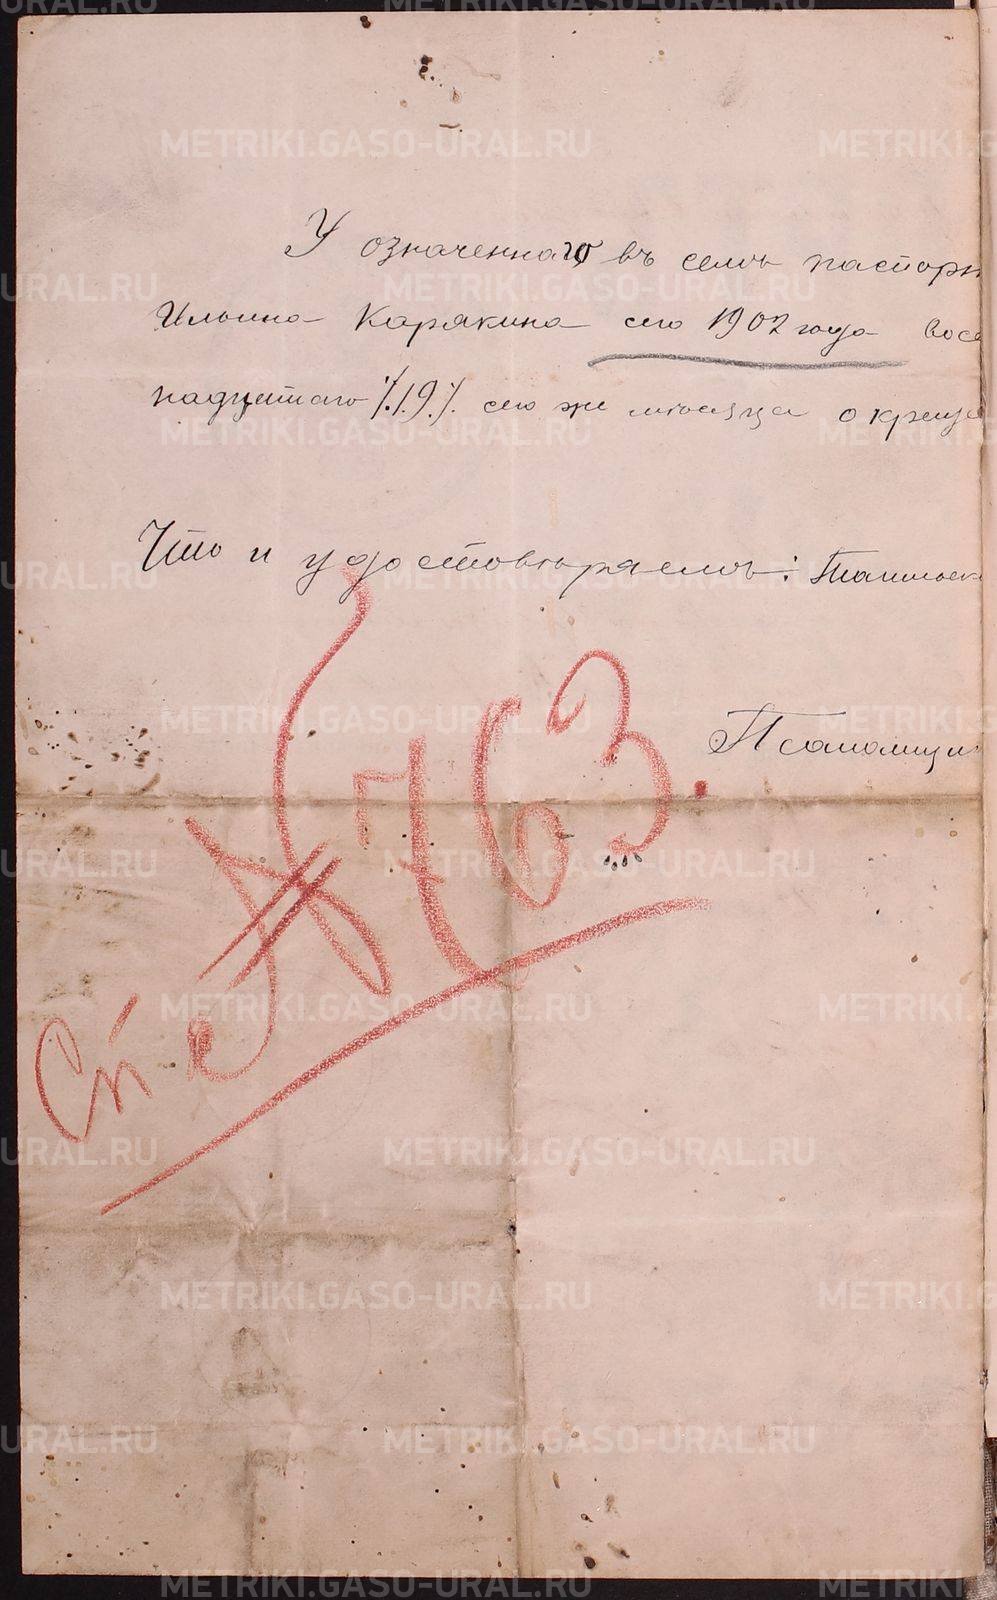 У означеннаго въ семъ паспорт
Ильина Карякина сего 1902 года вос
надцатаго /.19./ сего же месяца о креще
Что и удостовѣряемъ:
Псаломщи
№ 763.
METRIKI.GASO-URAL.RU